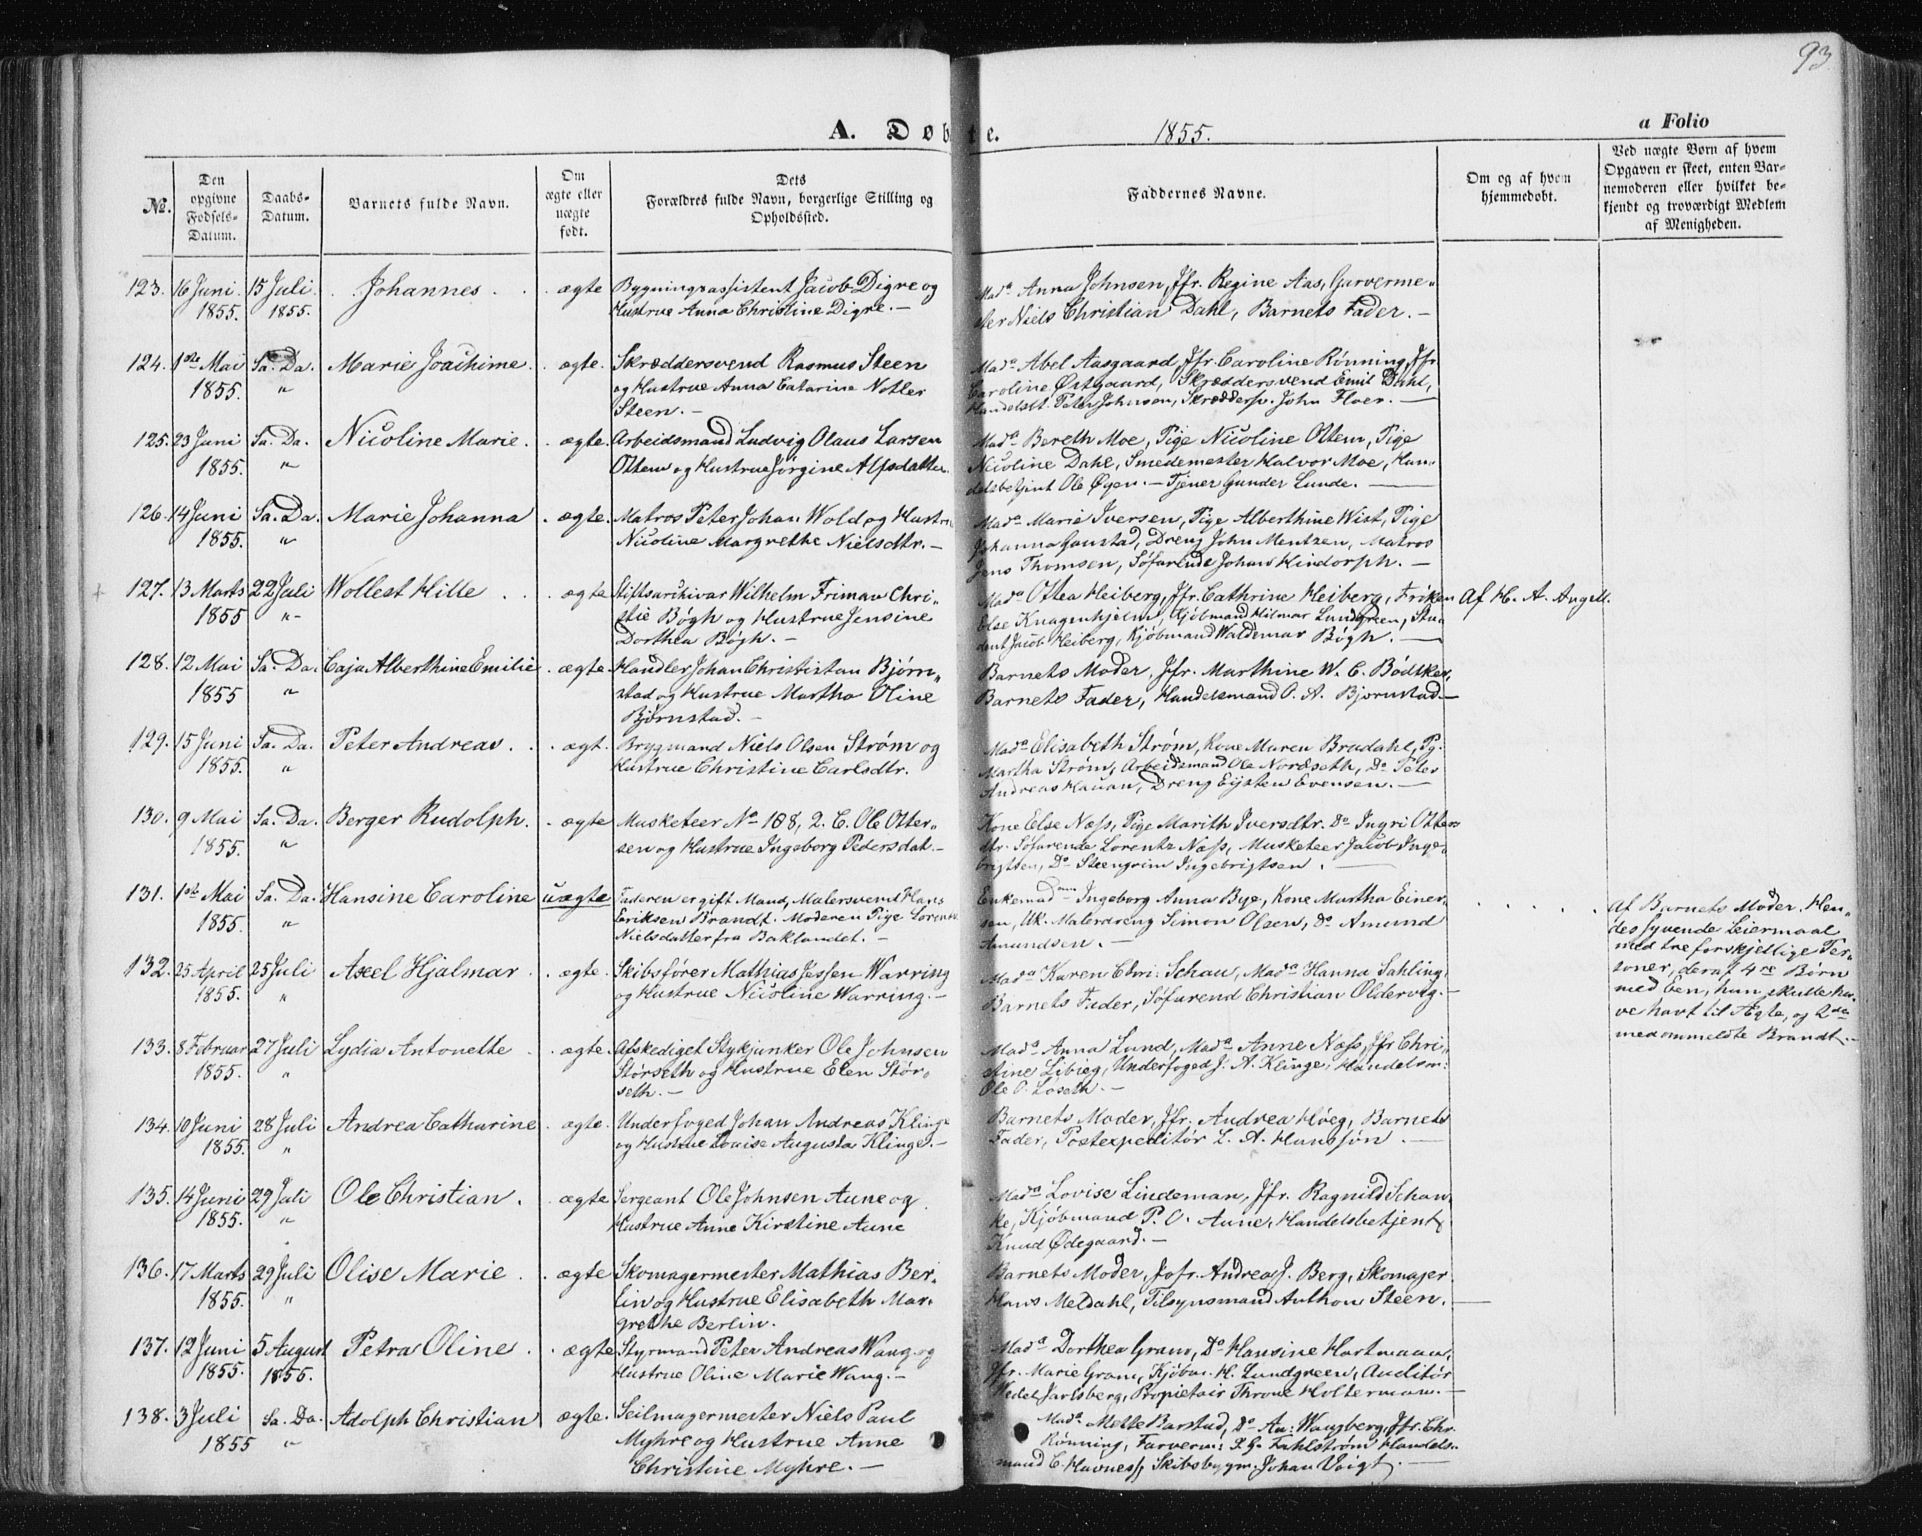 93
A. Døbte.
1855.
a Folio
No.
Den opgivne Fødsels-Datum.
Daabs-Datum.
Barnets fulde Navn.
Om ægte eller uægte født.
Dets Forældres fulde Navn, borgerlige Stilling og Opholdssted.
Faddernes Navne.
Om og af hvem hjemmedøbt.
Ved uægte Børn af hvem Opgaven er skeet, enten Barnemoderen eller hvilket bekjendt og troværdigt Medlem af Menigheden.
123. 16 Juni 1855. 15 Juli 1855. Johannes. ægte
Bygningsassistent Jacob Digre og
Hustrue Anna Christine Digre.
Mada Anna Johnsen, Jfr. Regine Aas, Garverme-
ster Niels Christian Dahl, Barnets Fader.
124. 1ste Mai 1855. Sa. Da. " Marie Joachime. ægte.
Skræddersvend Rasmus Steen
og Hustrue Anna Catarina Notler
Steen.
Mada Abel Aasgaard, Jfr. Caroline Rønning, Jfr
Caroline Østgaard, Skræddersvend Emil Dahl,
Handelsbt. Peter Johnsen, Skræddersv. John Floer.
125. 23 Juni 1855. Sa. Da. " Nicoline Marie. ægte.
Arbeidsmand Ludvig Olaus Larsen
Ottem og Hustrue Jørgine Alfsdatter.
Mada Bereth Moe, Pige Nicoline Ottem, Pige
Nicoline Dahl, Smedemester Halvor Moe, Han-
delsbetjent Ole Øyen. Tjener Gunder Lunde.
126. 14 Juni 1855. Sa. Da. " Marie Johanna. ægte.
Matros Peter Johan Wold og Hustr
Nicoline Margrethe Nielsdtr.
Mada Marie Iversen, Pige Alberthine Wist, Pige
Johanna Gaustad, Dreng John Mentzen, Matros
Jens Thomsen, Søfarende Johan Hindorph.
127. 13 Marts 1855 22 Juli "- Wollest Hille. ægte
Stiftsarkivar Wilhelm Friman Chri-
stie Bøgh og Hustrue Jensine
Dorthea Bøgh.
Mada Ottea Heiberg, Jfr. Cathrine Heiberg, Frøken
Else Knagenhjelm, Kjøbmand Hilmar Lundgreen, Stu-
dent Jacob Heiberg, Kjøbmand Waldemar Bøgh.
Af H. A. Angell.
128. 12 Mai 1855 Sa. Da. " Caja Alberthine Emilie. ægte.
Handler Johan Christistan Bjørn-
stad og Hustrue Martha Oline
Bjørnstad.
Barnets Moder, Jfr. Marthine W. C. Bødtker,
Barnets Fader, Handelsmand O. A. Bjørnstad.
129. 15 Juni 1855. Sa. Da. " Peter Andreas. ægt.
Brygmand Niels Olsen Strøm og
Hustrue Christine Carlsdtr.
Mada Elisabeth Strøm, Kone Maren Brudahl, Pg.
Martha Strøm, Arbeidsmand Ole Nordseth, Do Peter
Andreas Hauan, Dreng Eysten Evensen.
130. 9 Mai 1855. Sa. Da. " Berger Rudolph. ægte
Musketeer No 188, 2. C. Ole Otter-
sen og Hustrue Ingeborg Pedersdat.
Kone Else Næss, Pige Marith Iversdtr. Do Ingri Otters
dtr. Søfarende Lorentz Næss, Musketeer Jacob Inge-
brigtsen, Do Steengrim Ingebrigtsen.
131. 1ste Mai 1855. Sa. Da. " Hansine Caroline uægte
Faderen er gift Mand, Malersvend Hans
Eriksen Brandt. Moderen Pige Lorentze
Nielsdatter fra Baklandet.
Enkemadame Ingeborg Anna Bye, Kone Martha Einer-
sen, Uk. Malerdreng Simon Olsen, Do Amund
Amundsen.
Af Barnets Moder. Hen-
des syvende Leiermaal
med tre forskjellige Per-
soner, deraf 4re Børn
med Een, hun skulle ha-
ve havt til Ægte, og 2den
med ommeldte Brandt.
132. 25 April 1855. 25 Juli " Axel Hjalmar. ægte.
Skibsfører Mathias Jessen Warring
og Hustrue Nicoline Warring.
Mada Karen Chri: Schau, Mada Hanna Sahling,
Barnets Fader, Søfarend Christian Oldervig.
133. 8 Februar 1855. 27 Juli " Lydia Antonette. ægte.
Afskediget Stykjunker Ole Johnsen
Størseth og Hustrue Elen Stør-
seth.
Mada Anna Lund, Mada Anne Næss, Jfr Chri-
stine Libieg, Underfoged J. A. Klinge, Handelsm:
Ole O. Løseth.
134. 10 Juni 1855. 28 Juli " Andrea Catharine. ægte.
Underfoged Johan Andreas Klinge
og Hustrue Louise Augusta Klinge.
Barnets Moder, Jfr. Andrea Høeg, Barnets
Fader, Postexpeditør L. A. Hansson.
135. 14 Juni 1855. 29 Juli " Ole Christian. ægte
Sergeant Ole Johnsen Aune og
Hustrue Anne Kirstine Aune
Mada Lovise Lindeman, Jfr. Ragnild Schan
ke, Kjøbmand P. O. Aune, Handelsbetjent
Knud Ødegaard.
136. 17 Marts 1855. 29 Juli " Olise Marie. ægte
Skomagermester Mathias Ber-
lin og Hustrue Elisabeth Mar-
grethe Berlin.
Barnets Moder, Jofr. Andrea J. Berg, Skomager
Hans Meldahl, Tilsynsmand Anthon Steen.
137. 12 Juni 1855. 5 August 1855. Petra Oline. ægte
Styrmand Peter Andreas Wang og
Hustrue Oline Marie Wang.
Mada Dorthea Gram, Do Hansine Hartmann,
Jfr. Marie Gram, Kjøbm. H. Lundgreen, Auditør
Wedel Jarlsberg, Propietair Throne Holterman.
138. 3 Juli 1855 Sa. Da. " Adolph Christian ægte.
Seilmagermester Niels Paul
Myhre og Hustrue Anne
Christine Myhre.
Mada Mette Barstad, Do An: Wangberg, Jfr. Chr.
Rønning, Farverm: P. G. Fahlstrøm Handels-
mand C. Havness, Skibsbygm. Johan Voigt.